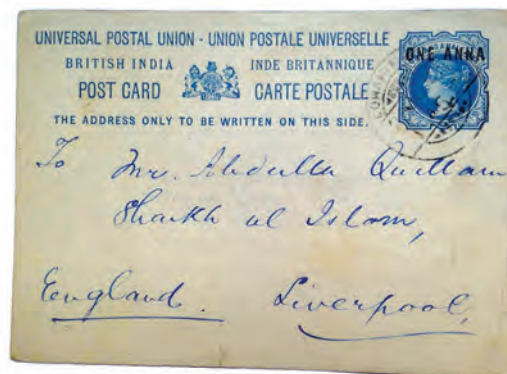 UNIVERSAL POSTAL UNION - UNION POSTALE UNIVERSELLE
BRITISH INDIA INDE BRITANNIQUE
POST CARD CARTE POSTALE
THE ADDRESS ONLY TO BE WRITTEN ON THIS SIDE.
ONE ANNA
To Mr. Abdulla Quilliam
Shaikh ul Islam,
England. Liverpool,